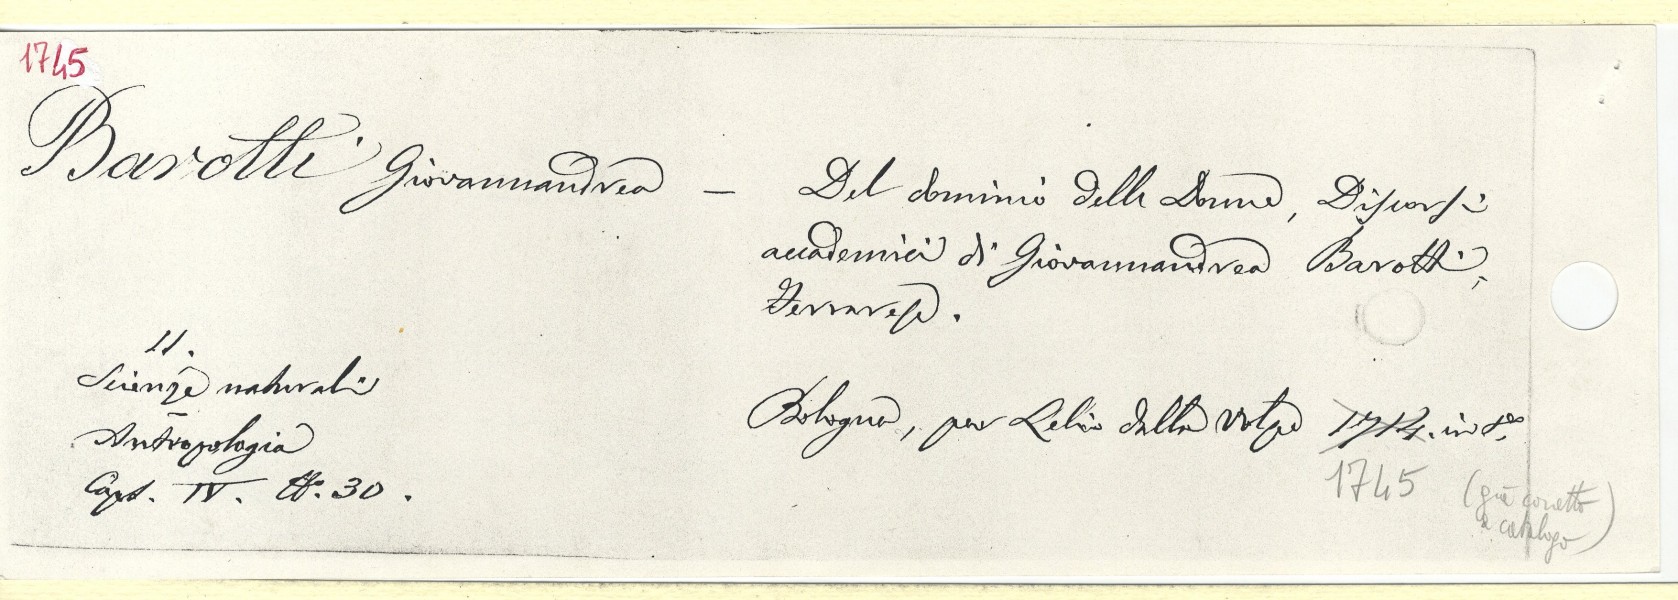 1745
Barotti Giovannandrea — Del dominio delle Donne, Discorsi
accademici di Giovannandrea Barotti,
Ferrarese.
11.
Scienze naturali
Antropologia
Caps. IV. N. 30.
Bologna, per Lelio dalla Volpe 1714. in 8.º
1745
(già corretto
a catalogo)